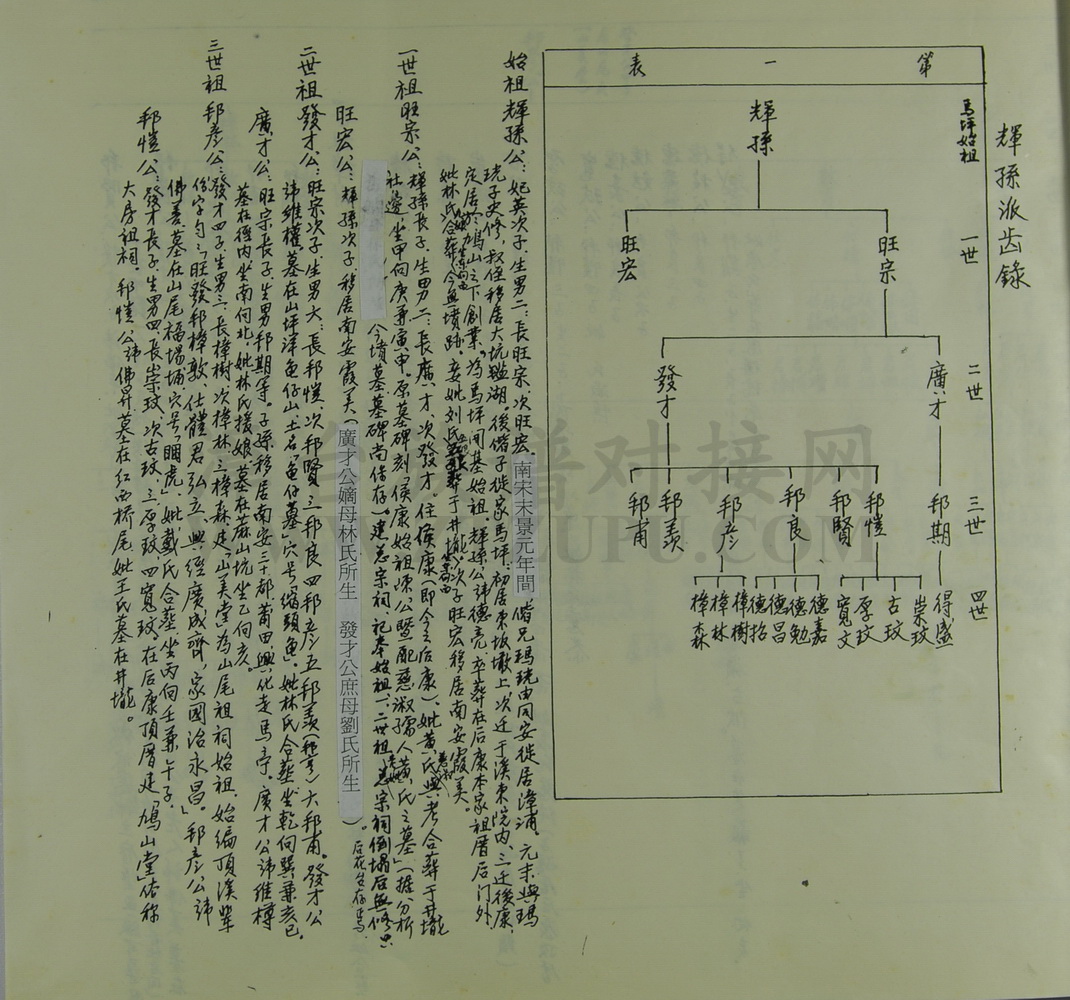 輝孫派齿錄
第一表
馬坪始祖
一世
二世
三世
四世
輝孫
旺宗
旺宏
廣才
發才
邦期
邦愷
邦賢
邦良
邦彥
邦羨
邦甫
得盛
崇玟
古玟
厚玟
寬文
德嘉
德勉
德昌
德招
樟樹
樟林
樟森
始祖輝孫公：妃英次子，生男二：長旺宗，次旺宏。南宋末景元年間偕兄瑪珖由同安徙居漳浦。元末與瑪
珖子史修，叔侄移居大坑 湖。後偕子徙家馬坪，初居東坂墩上，次迁于溪東院内，三迁後康，
定居於鳩山之下創業。为馬坪開基始祖。輝孫公諱德亮，卒葬在后康本家祖厝后门外，
妣林氏合葬，今無墳跡。妾妣刘氏 葬于井壠。次子旺宏移居南安霞美。
一世祖旺宗公：輝孫長子，生男二：長廣才，次發才。住侯康（即今之后康）、妣黃氏與考合葬于井壠
社邊，坐甲向庚兼寅申。原墓碑刻「侯康始祖陳公暨配慈淑孺人黃氏之墓」（据分析
今墳墓墓碑尚偆存）。建总宗祠，祀奉始祖、一、二世祖，总宗祠倒塌后無修
后花台存焉
旺宏公：輝孫次子，移居南安霞美（廣才公嫡母林氏所生 發才公庶母劉氏所生）。
二世祖發才公：旺宗次子，生男六：長邦愷，次邦賢，三邦良，四邦彥，五邦羨（ ），六邦甫。發才公
諱維權，墓在山坪洋魚仔山，土名「魚仔墓」穴号「縮頸魚」。妣林氏合葬坐乾向巽兼亥巳。
廣才公：旺宗長子，生男邦期等。子孫移居南安三十都、莆田、興化走馬亭。廣才公諱維樽
墓在徑内坐南向北，妣林氏援娘，墓在蔴山坑坐乙向亥。
三世祖邦彥公：發才四子，生男三：長樟樹，次樟林，三樟森。建「山美堂」为山尾祖祠始祖，始编頂溪輩
份字勻：「旺發邦樟敦、仕體君弘立、興經廣成齊，家國治永昌。」邦彥公諱
佛善，墓在山尾福場埔，穴号「睏虎」，妣戴氏合葬，坐丙向壬兼午子。
邦愷公：發才長子，生男四：長崇玟，次古玟，三厚玟，四寬玟。在后康頂厝建「鳩山堂」俗称
大房祖祠。邦愷公諱佛昇，墓在紅西桥尾，妣王氏墓在井壠。